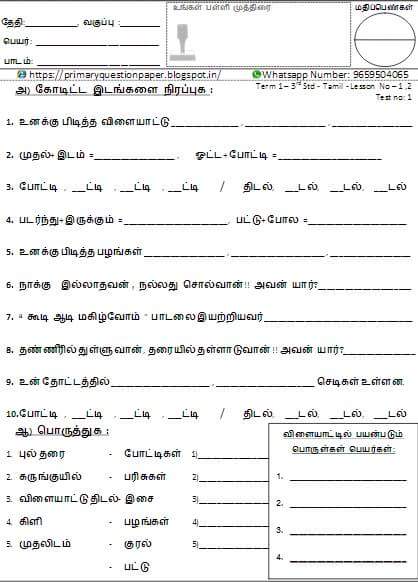 உங்கள் பள்ளி முத்திரை
மதிப்பெண்கள்
தேதி:__________, வகுப்பு :________
பெயர்: ___________________
பாடம்: ___________________
https://primaryquestionpaper.blogspot.in/ Whatsapp Number: 9659504065
அ) கோடிட்ட இடங்களை நிரப்புக : Term 1 – 3rd Std - Tamil - Lesson No – 1 ,2
Test no: 1
1. உனக்கு பிடித்த விளையாட்டு______________ , ______________, ______________
2. முதல்+ இடம் =______________ , ஓட்ட+போட்டி =______________
3. போட்டி , __ட்டி , __ட்டி , __ட்டி / திடல், __டல், __டல், __டல்
4. படர்ந்து+இருக்கும் =______________, பட்டு+போல =______________
5. உனக்கு பிடித்த பழங்கள் ______________ , ______________, ______________
6. நாக்கு இல்லாதவன் , நல்லது சொல்வான்!! அவன் யார்?______________
7. " கூடி ஆடி மகிழ்வோம் " பாடலை இயற்றியவர்______________
8. தண்ணீரில் துள்ளுவான், தரையில் தள்ளாடுவான் !! அவன் யார்?______________
9. உன் தோட்டத்தில் ______________ , ______________ செடிகள் உள்ளன.
10.போட்டி , __ட்டி , __ட்டி , __ட்டி / திடல், __டல், __டல், __டல்
ஆ) பொருத்துக :
1. புல் தரை - போட்டிகள் 1)______________
2. கருங்குயில் - பரிசுகள் 2)______________
3. விளையாட்டு திடல்- இசை 3)______________
4. கிளி - பழங்கள் 4)______________
5. முதலிடம் - குரல் 5)______________
- பட்டு
விளையாட்டில் பயன்படும்
பொருள்கள் பெயர்கள்:
1. ______________
2. ______________
3. ______________
4. ______________